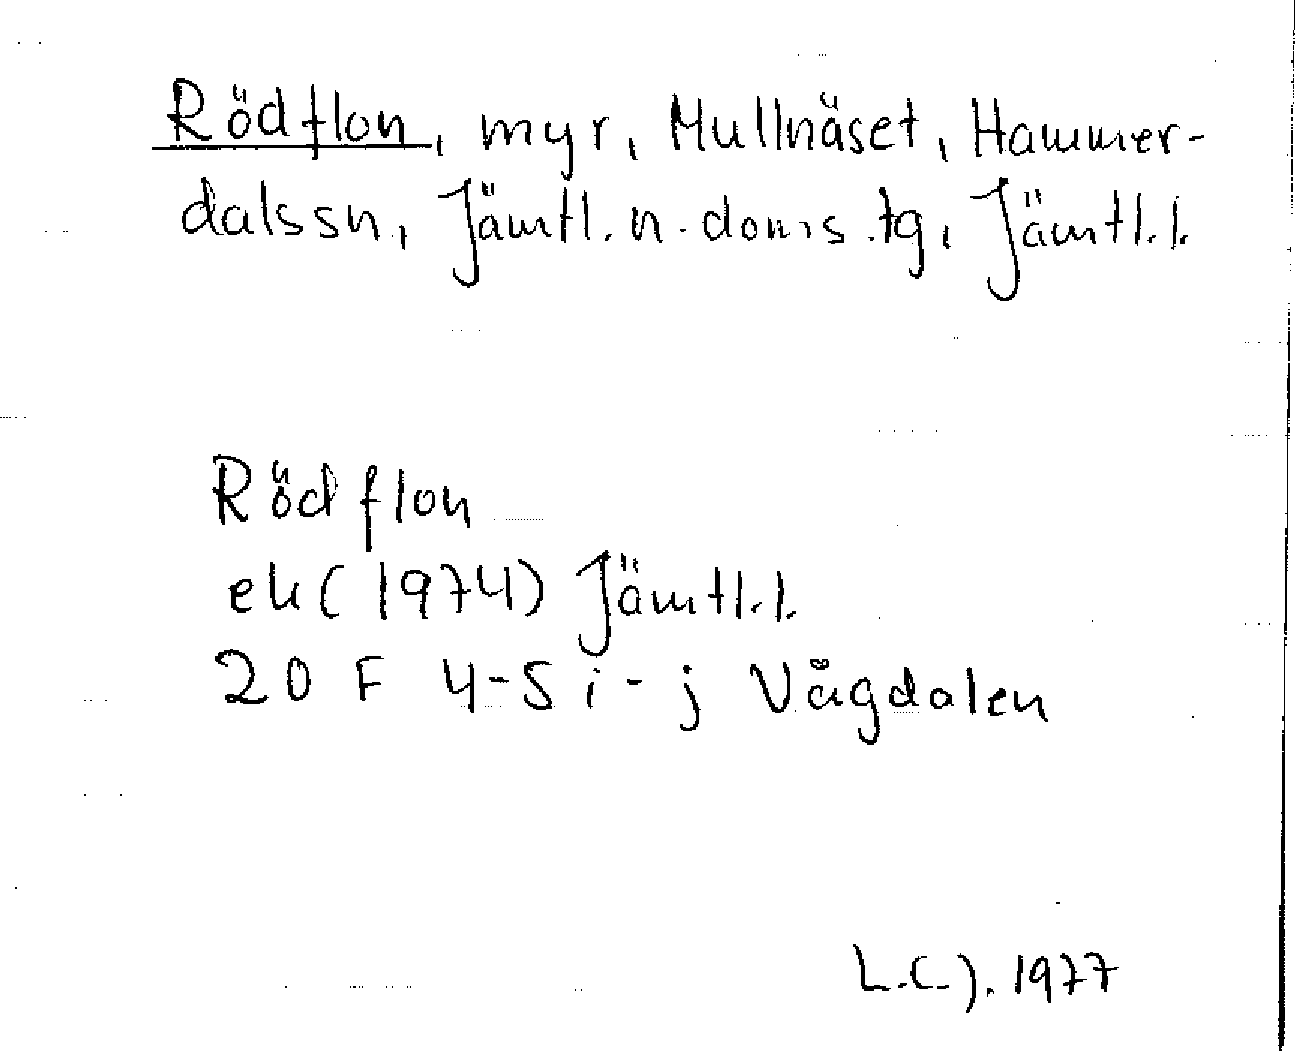 Rödflon, myr, Mullnäset, Hammer-
dalssn, Jämtl. n. doms. tg, Jämtl.l.
Rödflon
ek (1974) Jämtl.l.
20 F 4-5 i-j Vågdalen
L.C.J. 1977